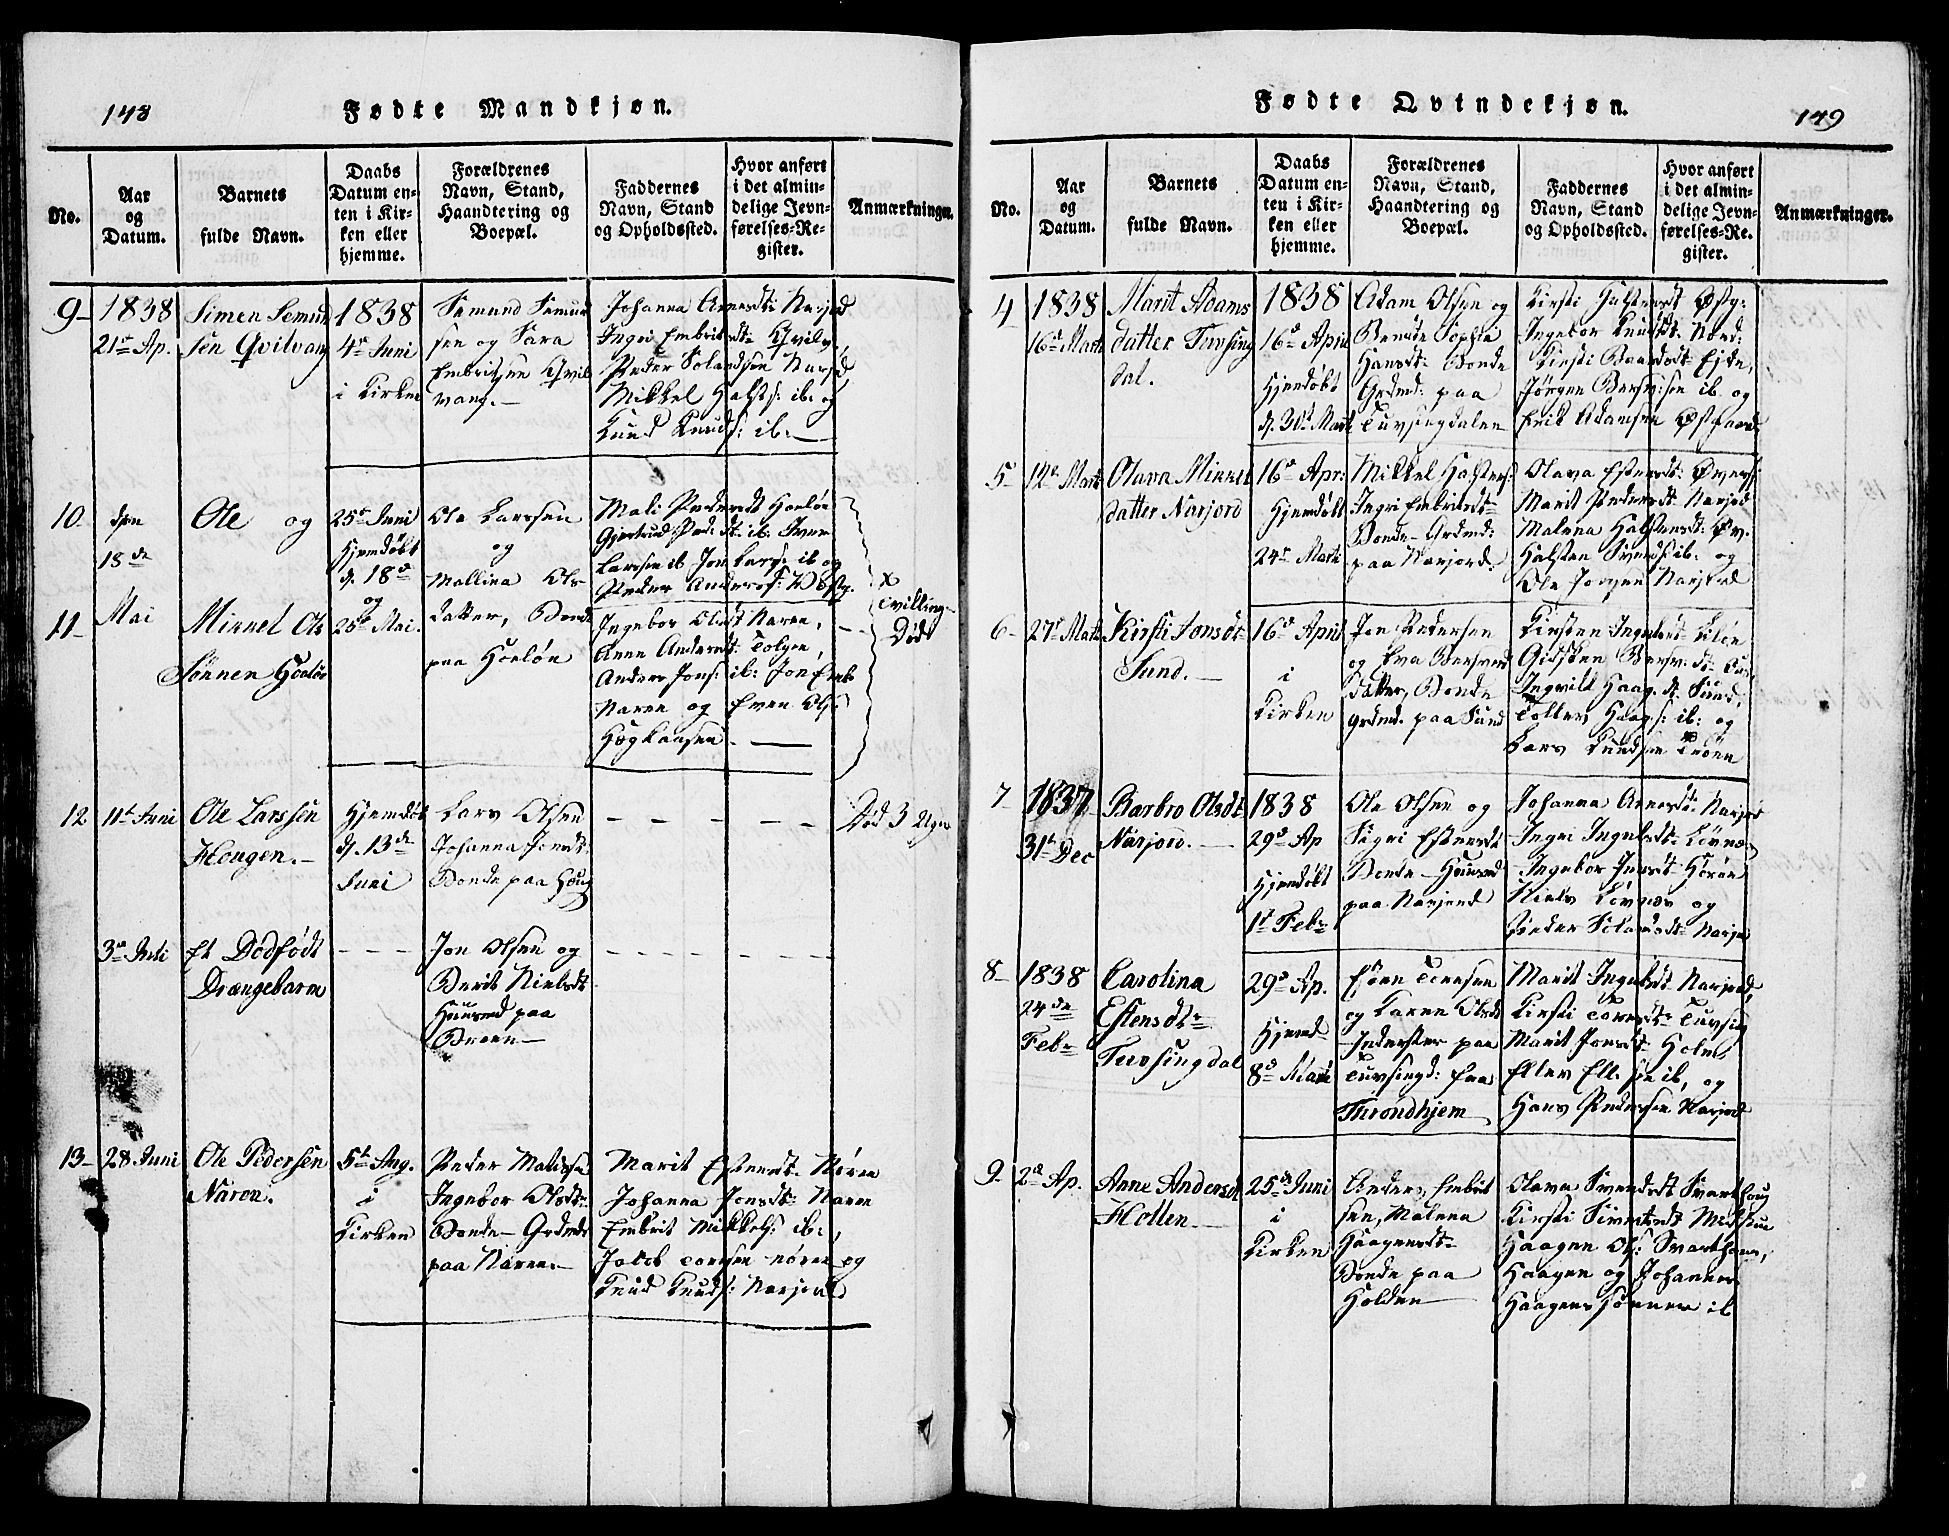 148
Fødte Mandkjøn.
No.
Aar
og
Datum.
Barnets
fulde Navn.
Daabs
Datum en-
ten i Kir-
ken eller
hjemme.
Forældrenes
Navn, Stand,
Haandtering og
Boepæl.
Faddernes
Navn, Stand
og Opholdssted.
Hvor anført
i det almin-
delige Jevn-
førelses-Re-
gister.
Anmærkninger.
9
1838
21de Ap.
Simen Semund
sen Qvilvang
1838
4de Juni
i Kirken
Semund Simen
sen og Sara
Embritsen Qvil
vang.
Johanna Arnesdt: Narjord
Ingri Embritsdt: Qvilv.,
Peder Solandsøn Narjd,
Mikkel Halsts: ib: og
Knud Knuds: ib:
10
den
18de
Mai
Ole og
25de Juni
Hjemdøbt
d. 18de
og
Ole Larssen
og
Mallina Ols
datter, Bonde
paa Hoeløn
Mali Pedersdt Hoeløn
Gjertrud Ped: dt: ib: Iver
Larssen ib Jon Lars: ib og
Peder Anders:
11
Mikkel Ols
Sønner Hoeløn
25de Mai.
Ingebor Olsdt Naren,
Anne Andersdt: Tolgen,
Anders Jons: ib: Jon Emb
Naren og Even Ols:
Hogkansen.
x
Tvilling
Død
12
11te Juni
Ole Larssen
Hougen.
Hjemdøbt
d. 13de
Juni
Lars Olsen
Johanna Jonsdt:
Bonde paa Houg
Død 3 Uger
3de Juli
Et Dødfødt
Drængebarn
Jon Olsen og
Berit Nielsdt
Huusmd paa
Breen
13
28 Juni
Ole Pedersen
Naren.
5te Aug.
i
Kirken
Peder
Ingebor Olsdt:
Bonde Grdmd
paa Naren.
Marit Estensdt: Nøren
Johanna Jonsdt: Naren
Embrit Mikkels: ib:,
Jakob Torssen nøren og
Knud Knuds: Narjord
149
Fødte Qvindekjøn.
No.
Aar
og
Datum.
Barnets
fulde Navn.
Daabs
Datum en-
ten i Kir-
ken eller
hjemme.
Forældrenes
Navn, Stand,
Haandtering og
Boepæl.
Faddernes
Navn, Stand
og Opholdssted.
Hvor anført
i det almin-
delige Jevn-
førelses-Re-
gister.
Anmærkninger.
4
1838
16de Marts
Marit Adams
datter Tuvsing
dal.
1838
16de April
Hjemdøbt
d. 30te Marts
Adam Olsen og
Berete Sophia
Hansdt: Bonde
Grdmd: paa
Tuvsingdalen
Kirsti Halstensdt Østg:
Ingebor Knudsdt: Nord:
Kirsti Baardsdt: Eide,
Jørgen Bersv:sen ib og
Erik Adamsen Østgaard
5
12te Marts
Olava Mikkel
datter Narjord
16de Apr:
Hjemdøbt
24de Marts
Mikkel Halstens:
Ingri Embritsdt:
Bonde Grdmd:
paa Narjord.
Olava Estensdt:
Marit Pedersdt: Narjord
Malena Halstensdt: Øv.
Halsten Svends: ib: og
Ole Jonsen Narjord
6
27de Marts
Kirsti Jonsdt
Sund.
16de April
i
Kirken
Jon Pedersen
og Eva Bersvend
datter, Bonde
Grdmd. paa Sund
Kirsten Ingebr:dt: Lilön
Gidsken Bersv: dt:
Ingvild Haag. dt. Sund,
Tollev Haag s: ib: og
Lars Knudsen
7
1837
31te Dec
Barbro Olsdt
Narjord.
1838
29de Ap
Hjemdøbt
1te Febr
Ole Olsen og
Sigri Estensdt
Bonde Huusmd
paa Narjord
Johanna Arnesdt: Narjord
Ingri Ingebr:dt: Lövnæs
Ingebor Jensdt: Hörön
Niels Lövnæs og
Peder Narjord
8
1838
24de
Febr
Carolina
Estensdtr
Tuvsingdal
29de Ap.
Hjemd
8de Marts
og Karen Olsdt
Inderster paa
Tuvsingd: fra
Throndhjem
Marit Ingebr:dt: Narjord,
Kirsti Toresdt: Tuvsing
Marit Jonsdt: Holm
Ellev Ell: sen ib, og
Hans Pedersen Narjord
9
2de Ap.
Anne Andersdt
Holten
25de Juni
i
Kirken
Anders Embrit
sen, Malena
Haagensdt:
Bonde paa
Holden
Olava Svendsdt Svarthaug
Kirsti Simensdt
Haagen Ols: Svarthaug,
Haagen og Johannes
Haagens sønner ib